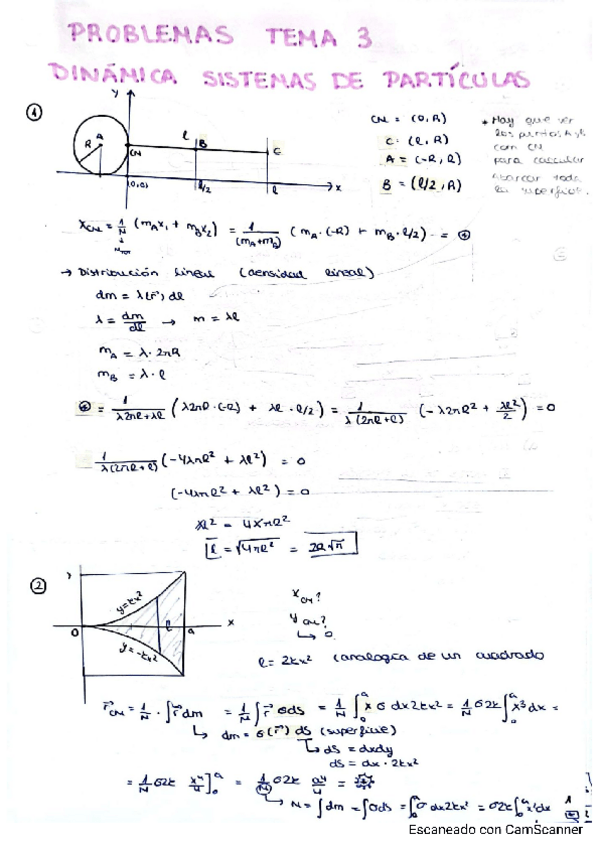 PROBLEMAS TEMA 3
DINÁMICA SISTEMAS DE PARTÍCULAS
①
y
R
A
CM
l
B
C
(0,0)
l/2
l
x
CM = (0, R)
C = (l, R)
A = (-R, R)
B = (l/2, R)
* Hay que ver
los puntos A y B
con CM
para calcular
Abarcar toda
la superficie.
X_CM = 1/M (m_A x_1 + m_B x_2) = 1/(m_A+m_B) (m_A · (-R) + m_B · l/2) = ⊛
M_TOT
→ Distribución lineal (densidad lineal)
dm = λ(r⃗) dl
λ = dm/dl → m = λl
m_A = λ · 2πR
m_B = λ · l
⊛ = 1/(λ2πR+λl) (λ2πR · (-R) + λl · l/2) = 1/(λ(2πR+l)) (-λ2πR² + λl²/2) = 0
1/(λ(2πR+l)) (-4λπR² + λl²) = 0
(-4λπR² + λl²) = 0
λl² = 4λπR²
l = √(4πR²) = 2R√π
②
y
y=kx²
0
l
a
x
y=-kx²
x_CM?
y_CM?
↳ 0
l = 2kx² (analogía de un cuadrado
r⃗_CM = 1/M · ∫r⃗ dm = 1/M ∫r⃗ σds = 1/M ∫₀ᵃ x σ dx2kx² = 1/M σ2k ∫₀ᵃ x³dx =
↳ dm = σ(r⃗) ds (superficie)
↳ ds = dxdy
ds = dx · 2kx²
= 1/M σ2k x⁴/4]₀ᵃ = 1/M σ2k a⁴/4 =
↳ M = ∫dm = ∫σds = ∫₀ᵃ σ dx2kx² = σ2k ∫₀ᵃ x²dx
Escaneado con CamScanner